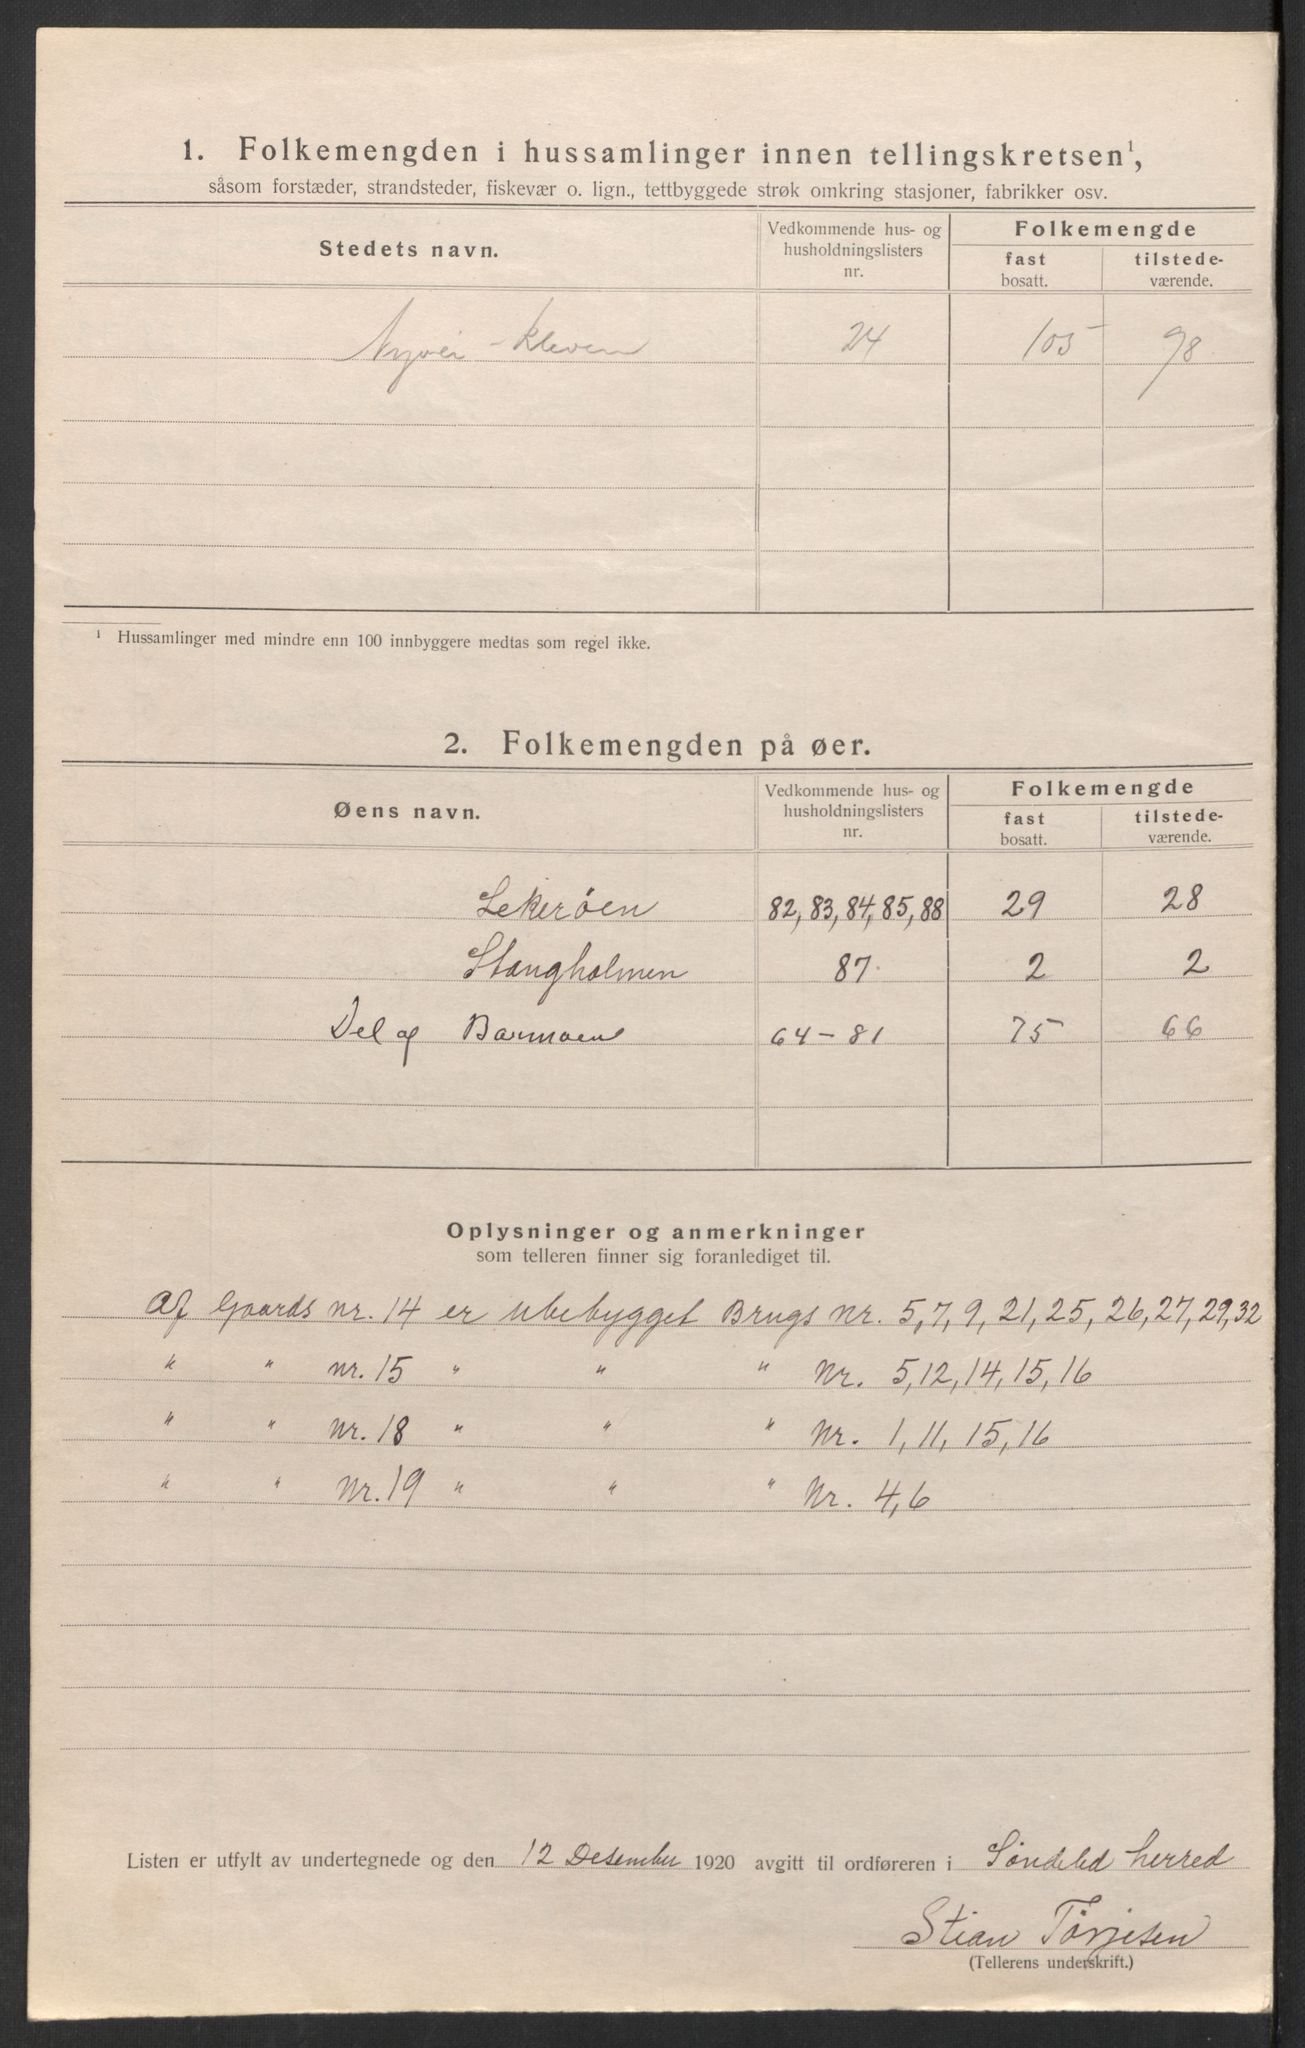 1. Folkemengden i hussamlinger innen tellingskretsen¹,
såsom forstæder, strandsteder, fiskevær o. lign., tettbyggede strøk omkring stasjoner, fabrikker osv.
Stedets navn. Vedkommende hus- og husholdningslisters nr. Folkemengde fast bosatt. tilstede-værende.
Nyvei - Kleven 24 105 98
¹ Hussamlinger med mindre enn 100 innbyggere medtas som regel ikke.
2. Folkemengden på øer.
Øens navn. Vedkommende hus- og husholdningslisters nr. Folkemengde fast bosatt. tilstede-værende.
Lekerøen 82, 83, 84, 85, 88 29 28
Stangholmen 87 2 2
Del af Barmoen 64 - 81 75 66
Oplysninger og anmerkninger
som telleren finner sig foranlediget til.
Af Gaards nr. 14 er ubebygget Brugs nr. 5, 7, 9, 21, 25, 26, 27, 29, 32
" " nr. 15 " " " Nr. 5, 12, 14, 15, 16
" " nr. 18 " " " Nr. 1, 11, 15, 16
" " Nr. 19 " " " Nr. 4, 6
Listen er utfylt av undertegnede og den 12 Desember 1920 avgitt til ordføreren i Søndeled herred
Stian Tørjesen
(Tellerens underskrift.)